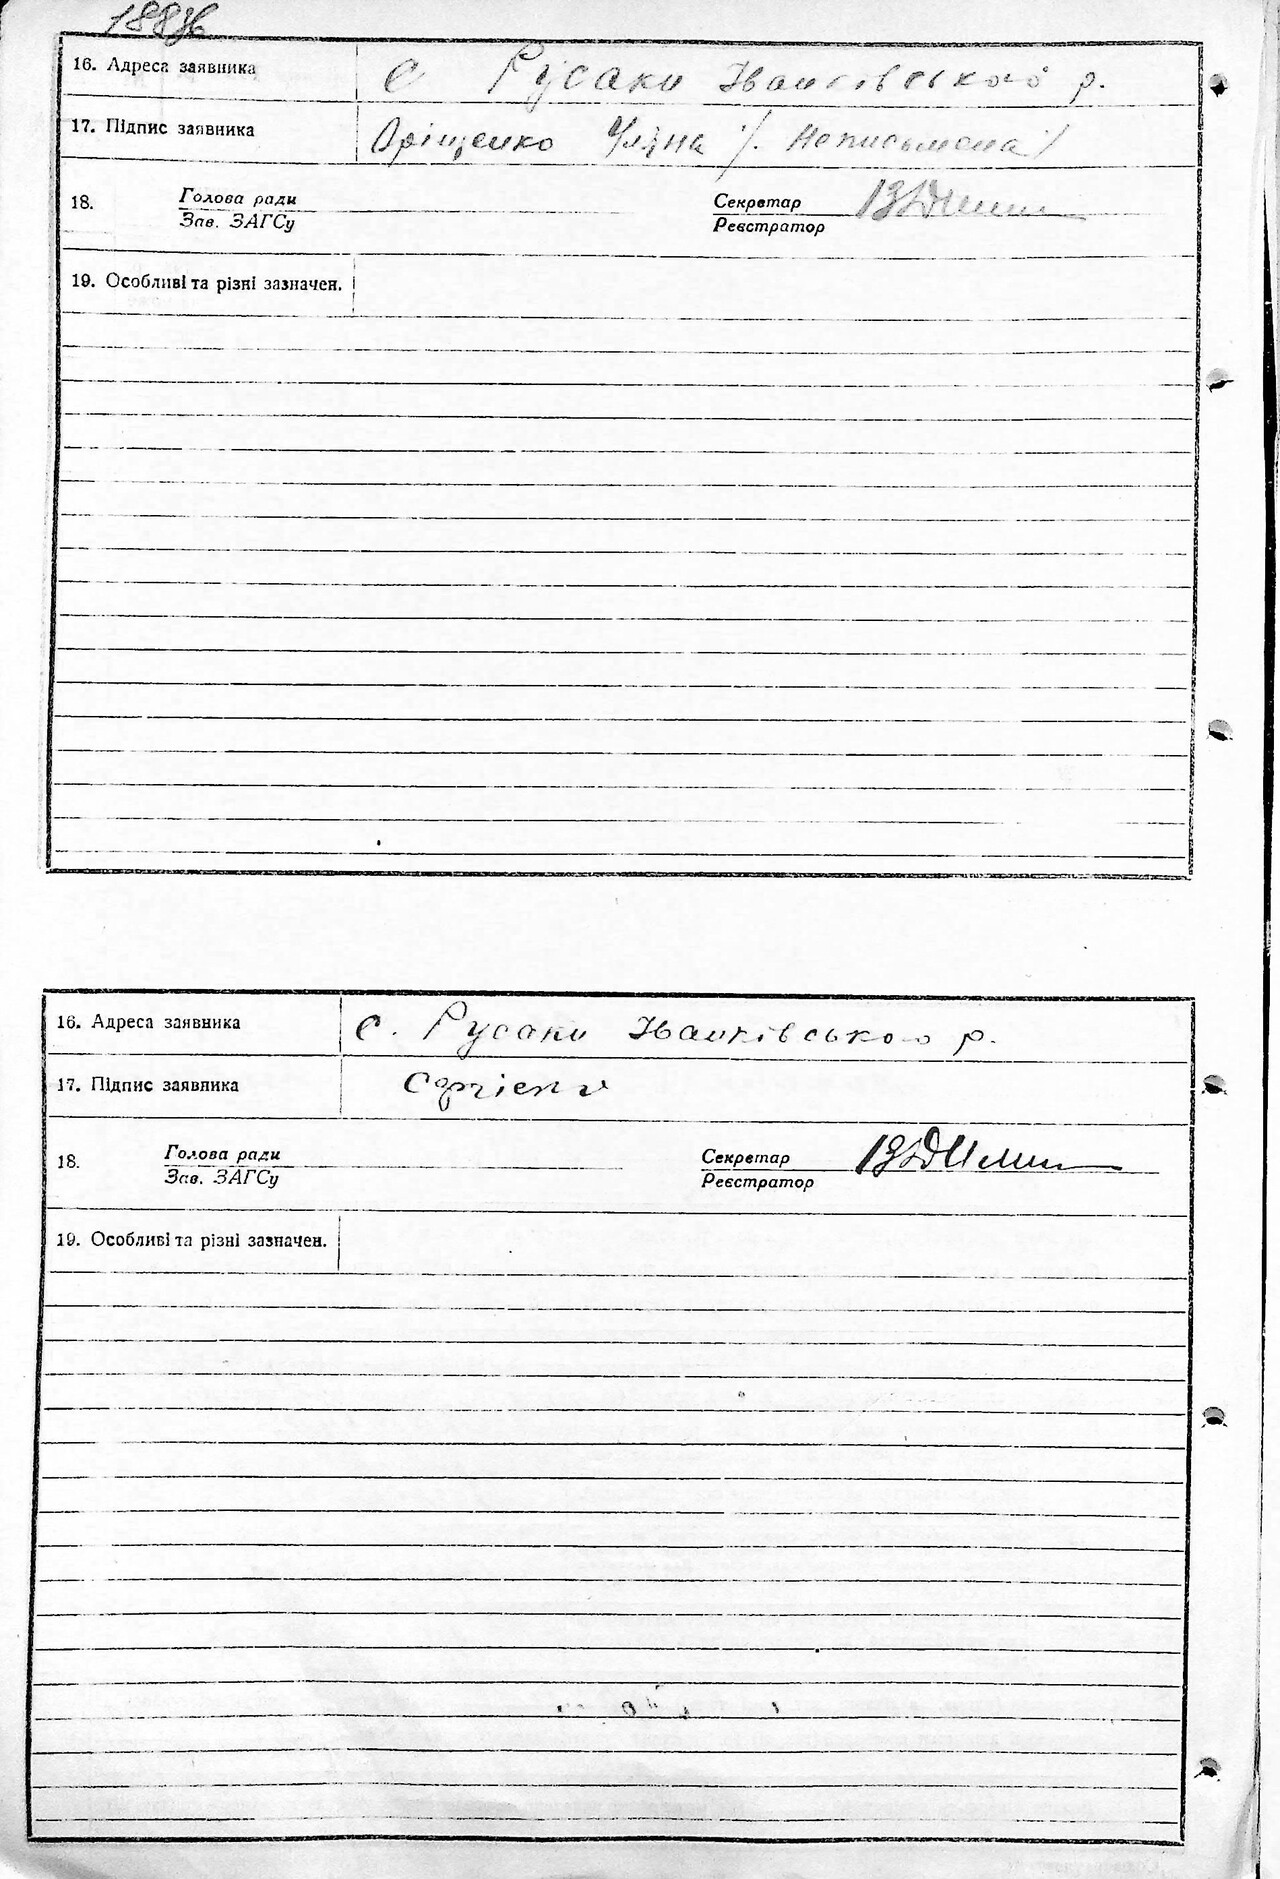 188зв
16. Адреса заявника с Русаки Іванківського р.
17. Підпис заявника Оріщенко Уляна /. Неписьмена /
18. Голова ради Секретар
Зав. ЗАГСу Реєстратор
19. Особливі та різні зазначен.
16. Адреса заявника с. Русаки Іванківського р.
17. Підпис заявника
18. Голова ради Секретар
Зав. ЗАГСу Реєстратор
19. Особливі та різні зазначен.